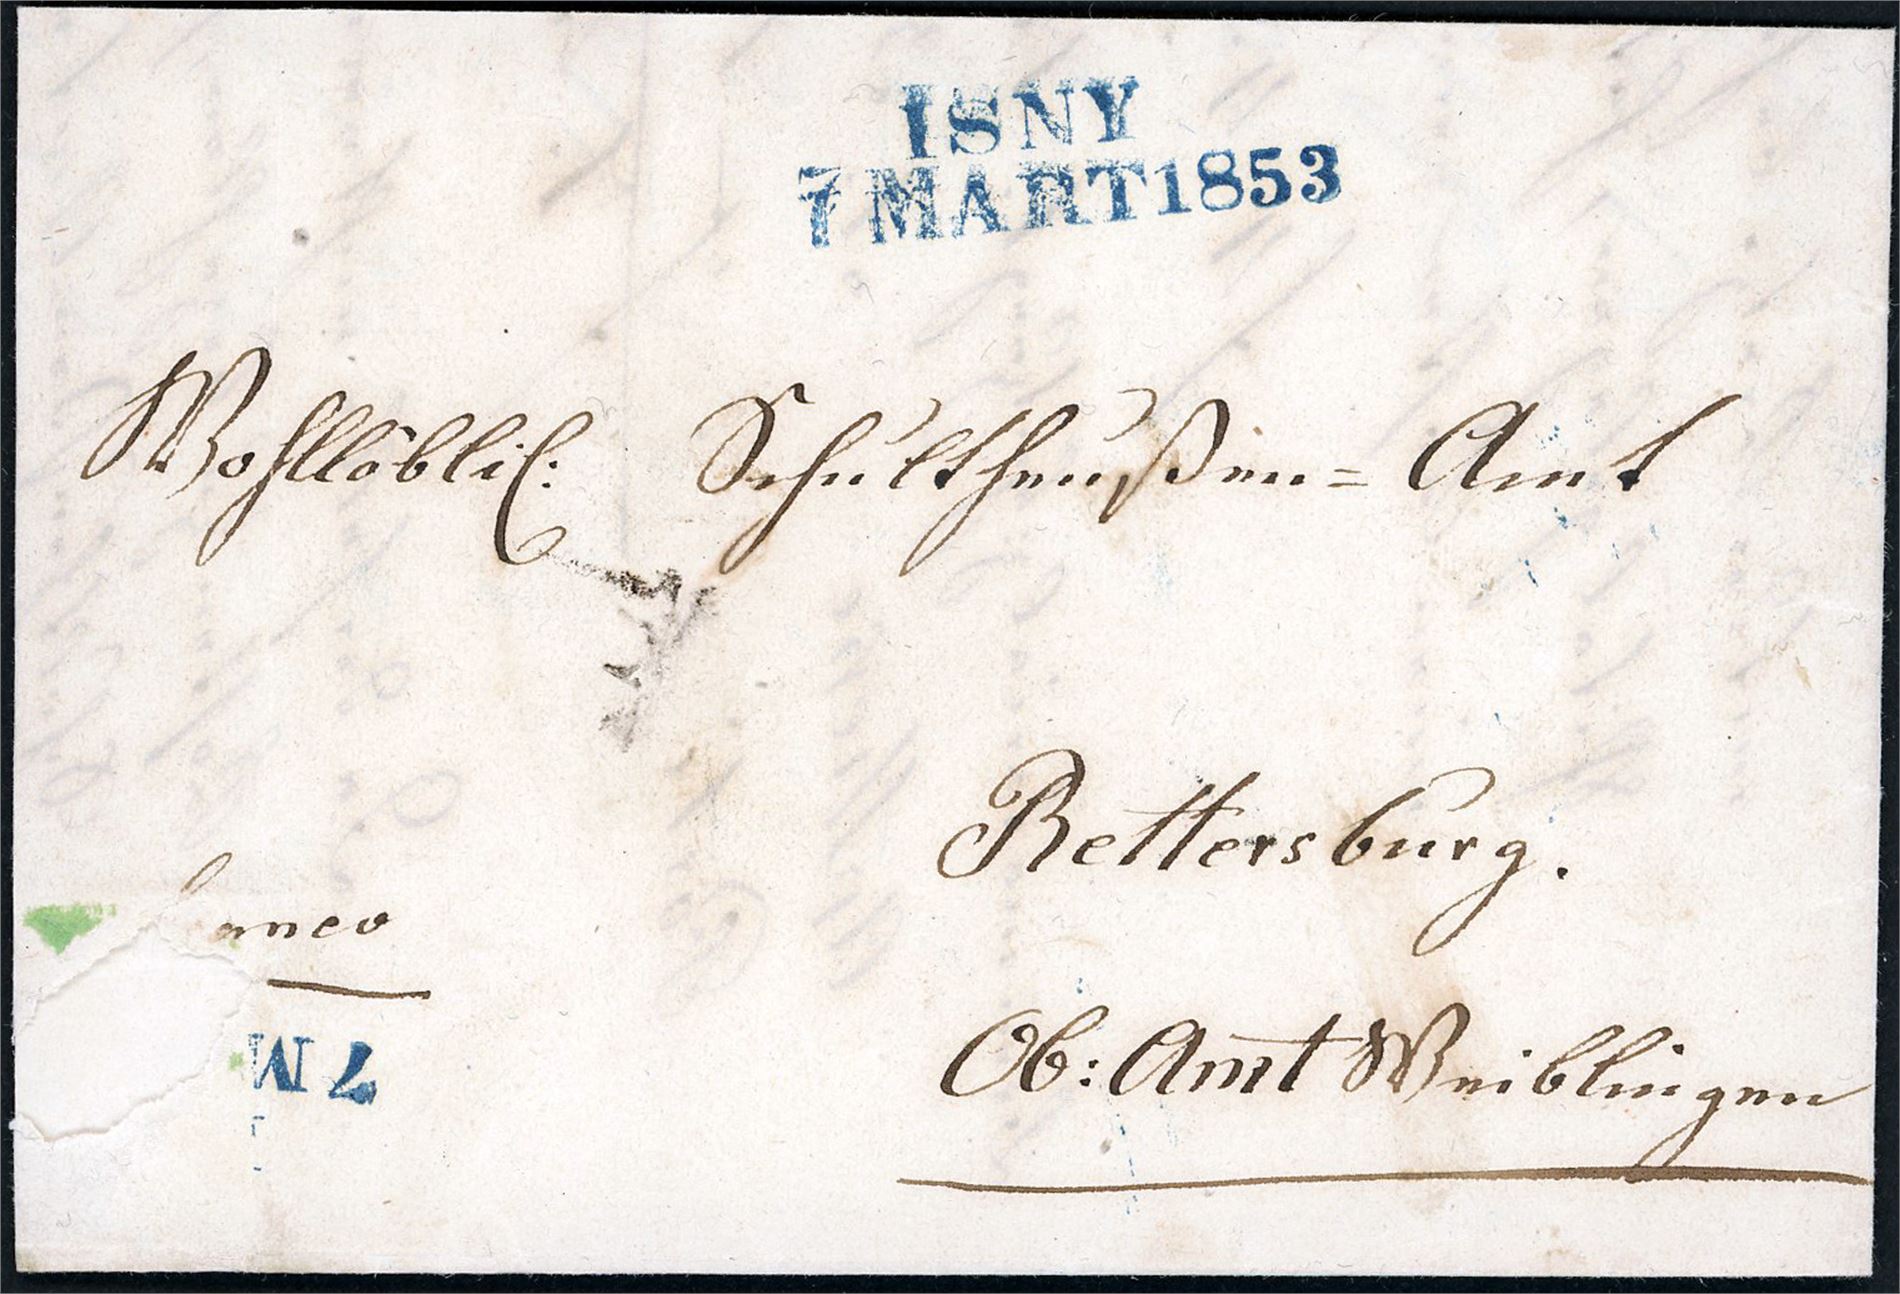 ISNY
7 MART 1853
Wohllöblich: Schultheußen=Amt
Rettersburg.
anco
Ob: Amt Weiblingen
7 M